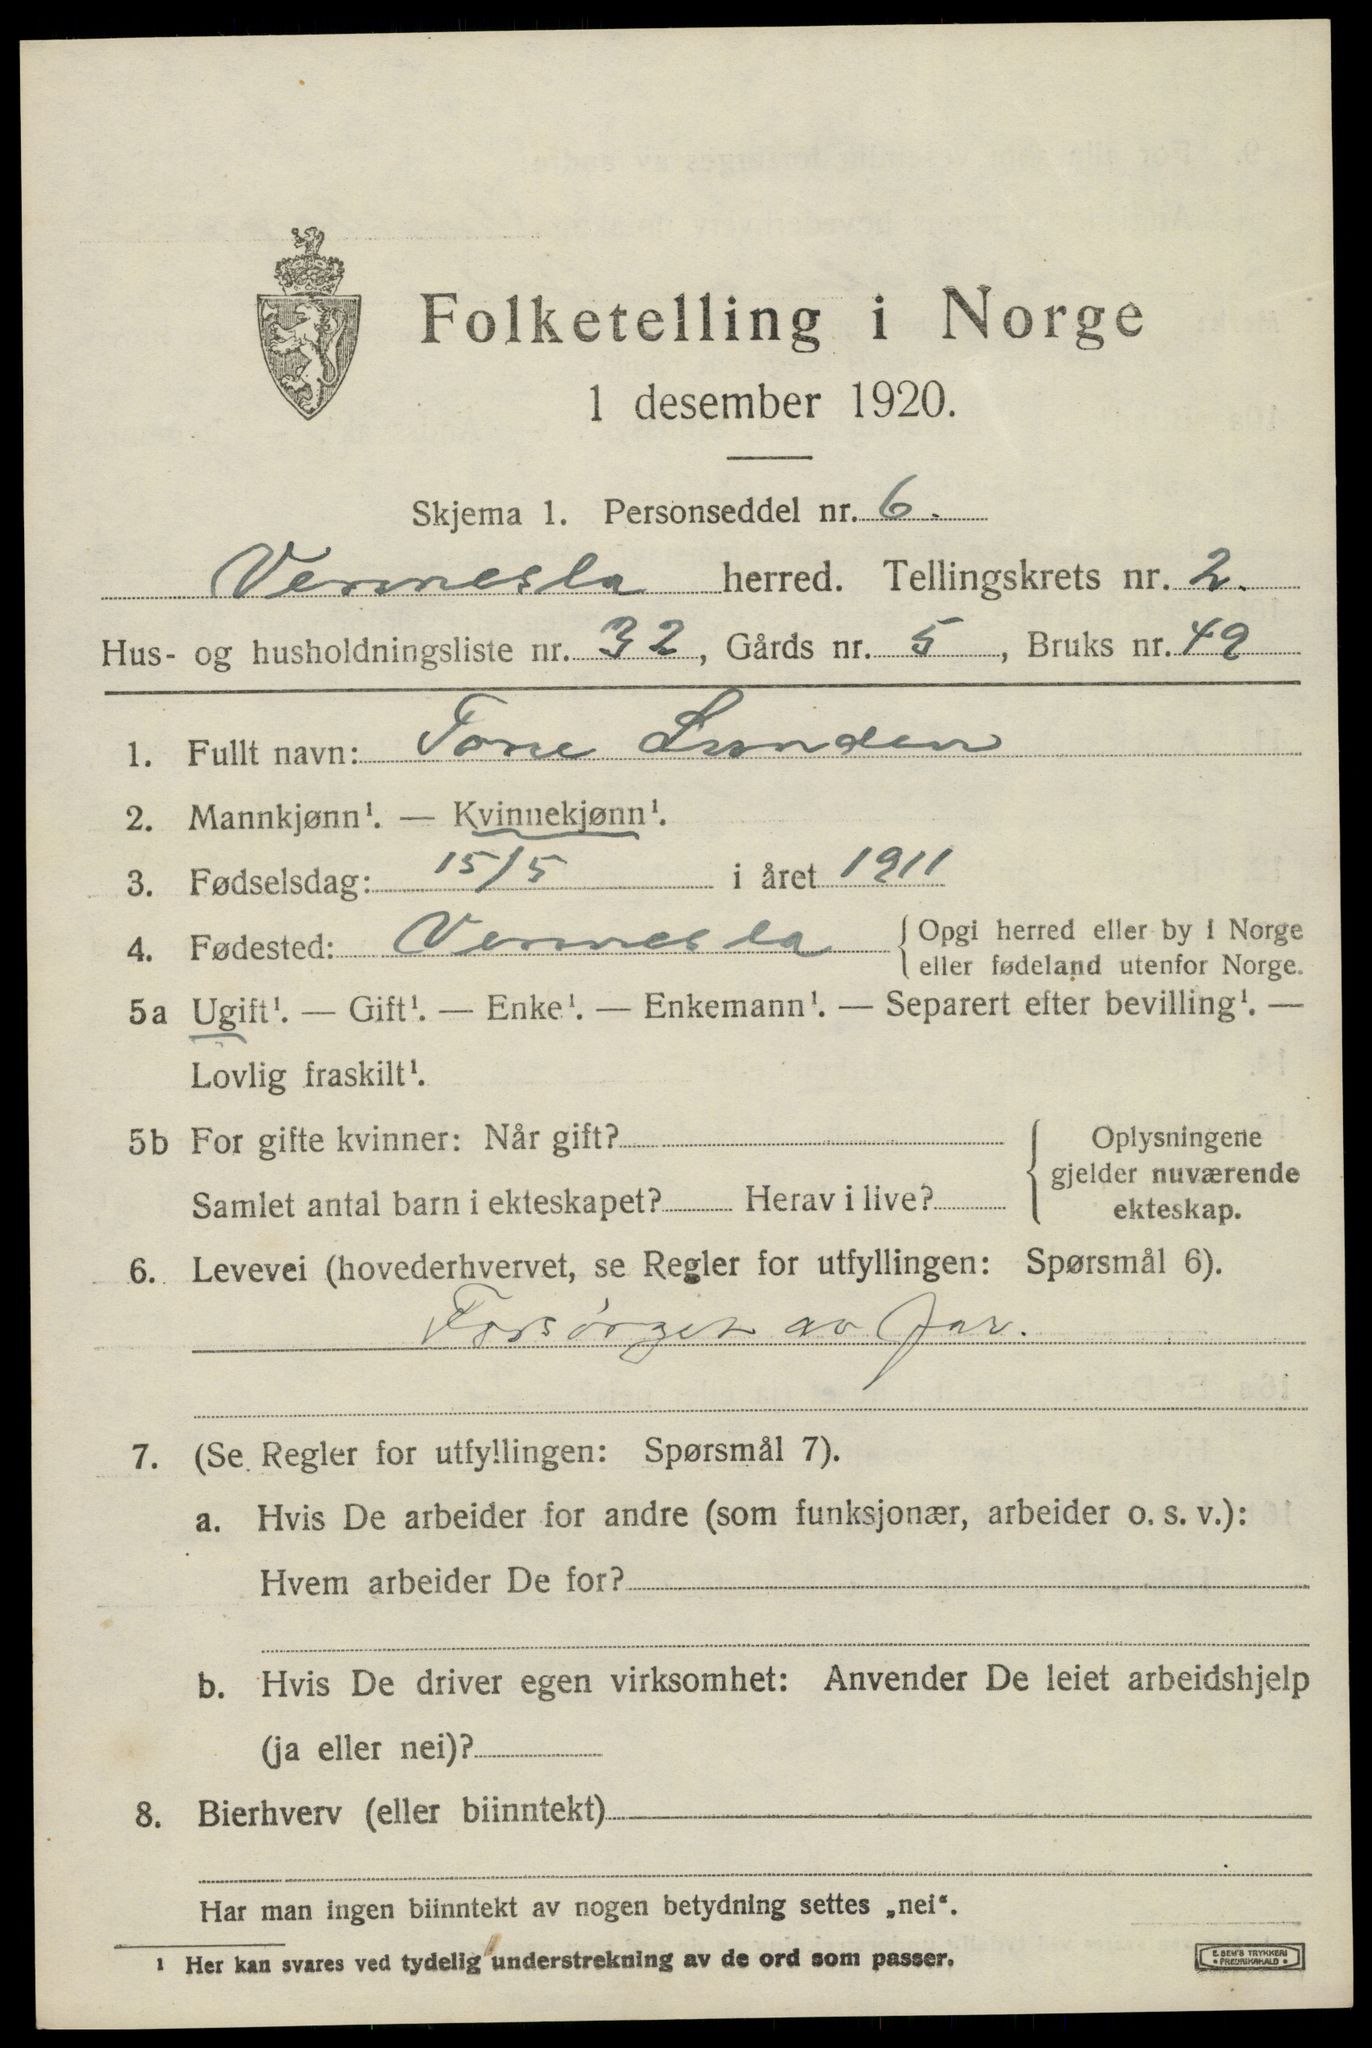 Folketelling i Norge
1 desember 1920.
Skjema 1. Personseddel nr. 6.
Vennesla herred. Tellingskrets nr. 2.
Hus- og husholdningsliste nr. 32, Gårds nr. 5, Bruks nr. 49
1. Fullt navn: Tone Lunden
2. Mannkjønn¹. — Kvinnekjønn¹.
3. Fødselsdag: 15/5 i året 1911
4. Fødested: Vennesla { Opgi herred eller by i Norge
eller fødeland utenfor Norge.
5a Ugift¹. — Gift¹. — Enke¹. — Enkemann¹. — Separert efter bevilling¹. —
Lovlig fraskilt¹.
5b For gifte kvinner: Når gift? { Oplysningene
gjelder nuværende
Samlet antal barn i ekteskapet? Herav i live? ekteskap.
6. Levevei (hovederhvervet, se Regler for utfyllingen: Spørsmål 6).
Forsørget av far.
7. (Se Regler for utfyllingen: Spørsmål 7).
a. Hvis De arbeider for andre (som funksjonær, arbeider o. s. v.):
Hvem arbeider De for?
b. Hvis De driver egen virksomhet: Anvender De leiet arbeidshjelp
(ja eller nei)?
8. Bierhverv (eller biinntekt)
Har man ingen biinntekt av nogen betydning settes „nei“.
¹ Her kan svares ved tydelig understrekning av de ord som passer.
E. SEM'S TRYKKERI
• FREDRIKSHALD •